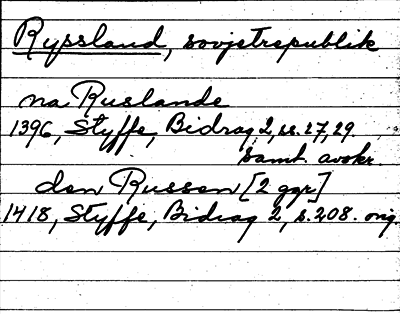 Ryssland, sovjetrepublik
na Ruslande
1396, Styffe, Bidrag 2, ss. 27, 29.
samt. avskr.
den Russen [2 ggr]
1418, Styffe, Bidrag 2, s. 208. orig.